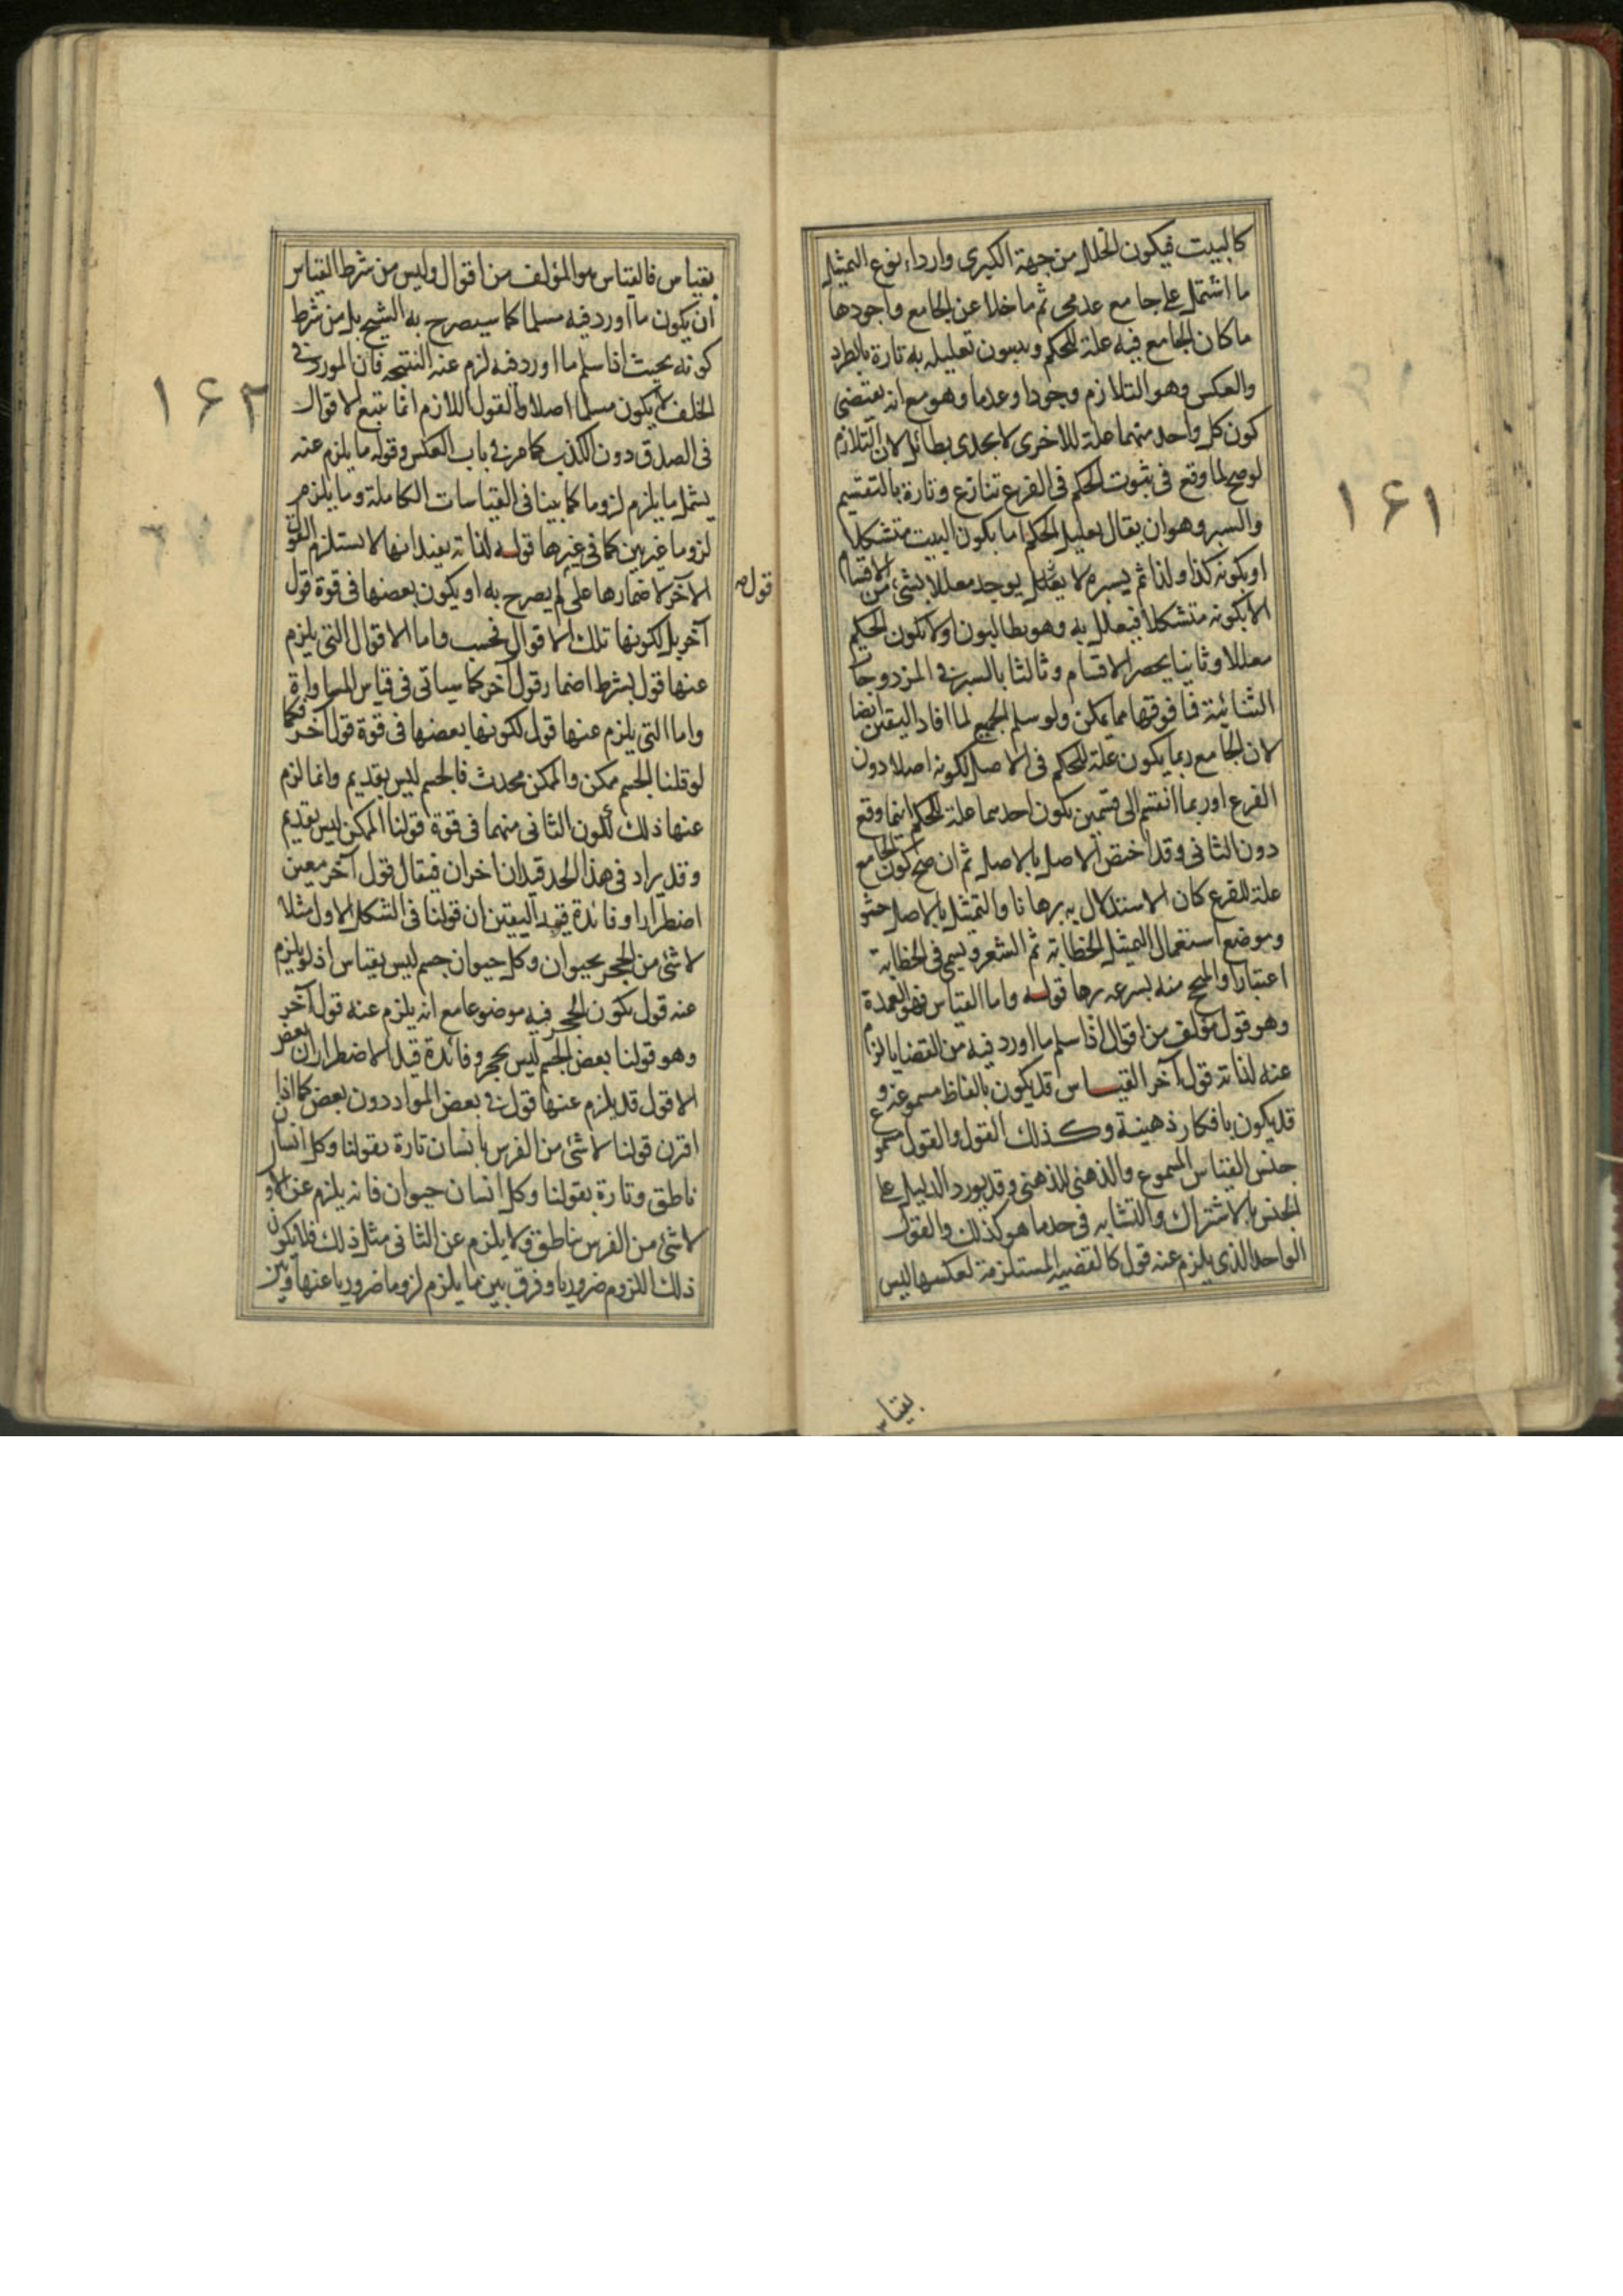 كالبيت فيكون الخلل من جهة الكبرى واردا، نوع التمثيل
ما اشتمل على جامع عدمى ثم ما خلا عن الجامع واجودها
ما كان الجامع فيه علة للحكم ويسمون تعليله به تارة بالطرد
والعكس وهو التلازم وجودا وعدما وهو مع انه يقتضى
كون كل واحد منهما علة للاخرى لا يجدى بطائل لان التلازم
لو صح لما وقع فى ثبوت الحكم فى الفرع تنازع وتارة بالتقسيم
والسبر وهو ان يقال تعليل الحكم اما بكون البيت متشكلا
او بكونه كذا وكذا ثم يسبر فلا يوجد معللا بشئ من الاقسام
الا بكونه متشكلا فيعلل به وهو يطالبون اولا بكون الحكم
معللا وثانيا بحصر الاقسام وثالثا بالسبر فى المزدوجات
الثنائية فما فوقها مما يمكن ولو سلم الجميع لما افاد اليقين ايضا
لان الجامع ربما يكون علة للحكم فى الاصل لكونه اصلا دون
الفرع او ربما انقسم الى قسمين يكون احدهما علة للحكم اينما وقع
دون الثانى وقد اختص الاصل بالاصل ثم ان صح كون الجامع
علة للفرع كان الاستدلال به برهانا والتمثيل بالاصل حشو
وموضع استعمال التمثيل الخطابة ثم الشعر ويسمى فى الخطابة
اعتبارا والمنجح منه بسرعه برها قوله واما القياس فهو العمدة
وهو قول مؤلف من اقوال اذا سلم ما اورد فيه من القضايا لزم
عنه لذاته قول آخر القياس قد يكون بالفاظ مسموعة و
قد يكون بافكار ذهنية وكذلك القول والقول مسموع
جنس القياس المسموع والذهنى للذهنى وقد يورد الدليل على
الجنس بالاشتراك والتشابه فى حد ما هو كذلك والقول
الواحد الذى يلزم عنه قول كالقضيه المستلزمة لعكسها ليس
بقياس
١٦١
بقياس فالقياس هو المؤلف من اقوال وليس من شرط القياس
ان يكون ما اورد فيه مسلما كما سيصرح به الشيخ بل من شرط
كونه بحيث اذا سلم ما اورد فيه لزم عنه النتيجة فان المورد فى
الخلف لا يكون مسلما اصلا والقول اللازم انما يتبع الاقوال
فى الصدق دون الكذب كما مر فى باب العكس وقوله ما يلزم عنه
يشمل ما يلزم لزوما كما بينا فى القياسات الكاملة وما يلزم
لزوما غير بين كما فى غيرها قوله لذاته يفيد انها لا يستلزم القول
الآخر لاضمارها على لم يصرح به او يكون بعضها فى قوة قول
قوله
آخر بل لكونها تلك الاقوال فحسب واما الاقوال التى يلزم
عنها قول بشرط اضمار قول آخر كما سياتى فى قياس المساواة
واما التى يلزم عنها قول لكونها بعضها فى قوة قول آخر فكما
لو قلنا الجسم ممكن والممكن محدث فالجسم ليس بقديم وانما لزم
عنها ذلك لكون الثانى منهما فى قوة قولنا الممكن ليس بقديم
وقد يراد فى هذا الحد قيدان اخران فيقال قول آخر معين
اضطرارا وفائدة قيد اليقين ان قولنا فى الشكل الاول مثلا
لا شئ من الحجر بحيوان وكل حيوان جسم ليس بقياس اذ لو يلزم
عنه قول بكون الحجر فيه موضوعا مع انه يلزم عنه قول آخر
وهو قولنا بعض الجسم ليس بحجر وفائدة قيد الاضطرار ان بعض
الاقول قد يلزم عنها قول فى بعض المواد دون بعض كما اذا
اقترن قولنا لا شئ من الفرس بانسان تارة بقولنا وكل انسان
ناطق وتارة بقولنا وكل انسان حيوان فانه يلزم عن الاول
لا شئ من الفرس بناطق ولا يلزم عن الثانى مثل ذلك فلا يكون
ذلك اللزوم ضروريا وفرق بين ما يلزم لزوما ضروريا عنها وبين
١٦٢